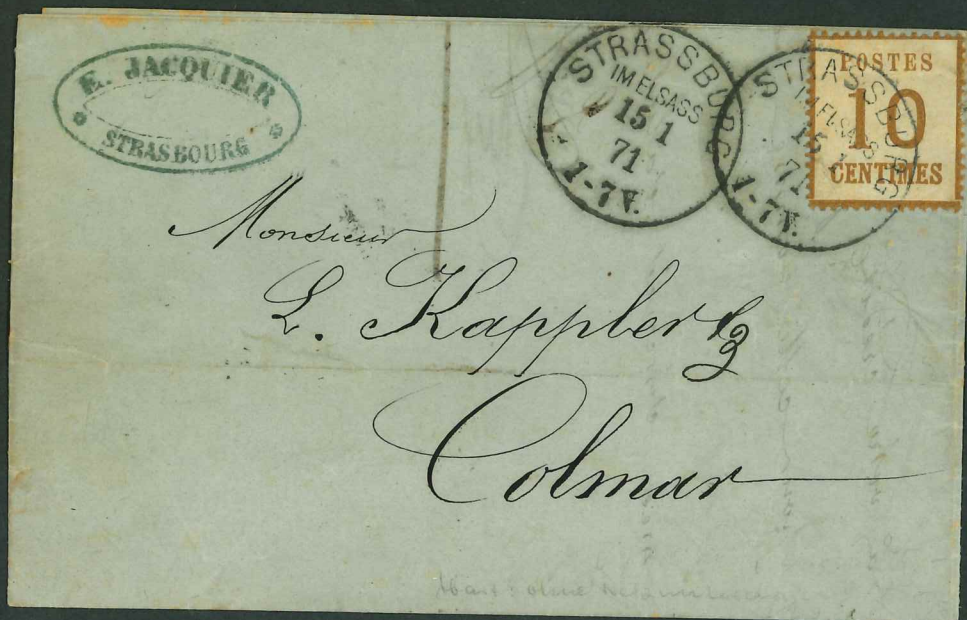 E. JACQUIER
STRASBOURG
STRASSBURG
IM ELSASS
15 1
71
1-7 V.
STRASSBURG
IM ELSASS
15 1
71
1-7 V.
POSTES
10
CENTIMES
Monsieur
L. Kappler
Colmar